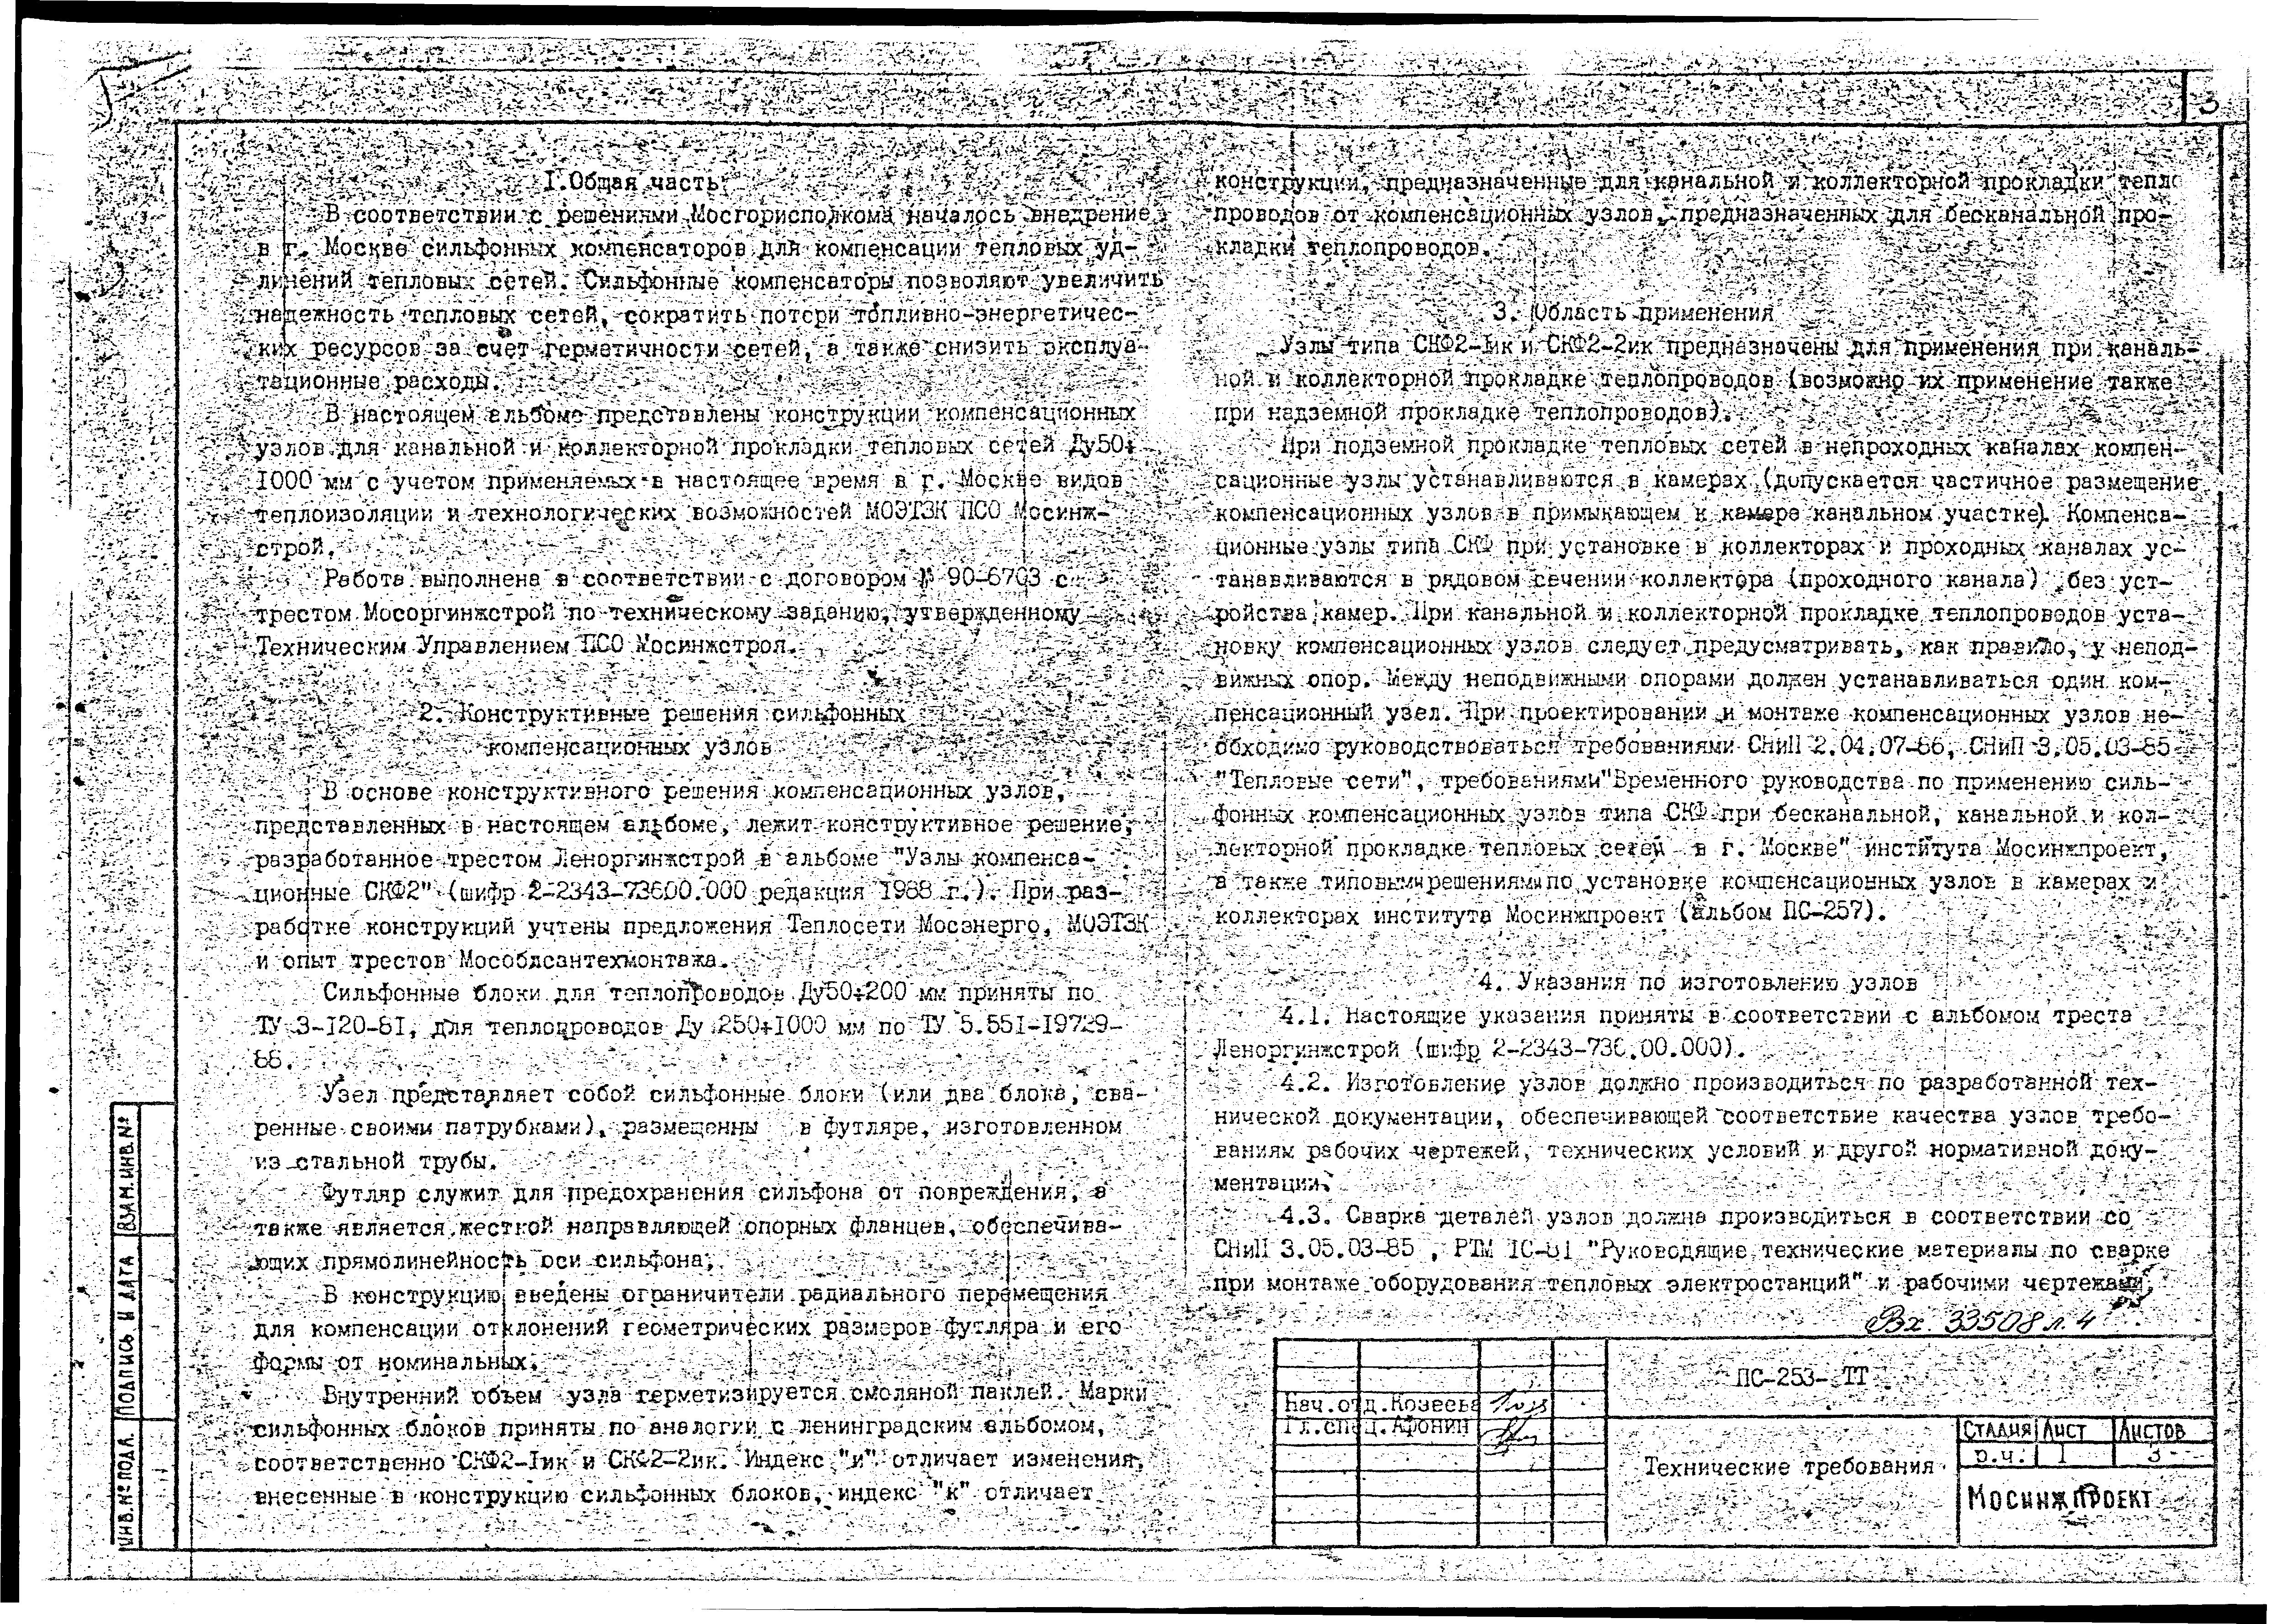 3
1.Общая часть
В соответствии с решениями Мосгорисполкома началось внедрение
в г. Москве сильфонных компенсаторов для компенсации тепловых уд-
линений тепловых сетей. Сильфонные компенсаторы позволяют увеличить
надежность тепловых сетей, сократить потери топливно-энергетичес-
ких ресурсов за счет герметичности сетей, а также снизить эксплуа-
тационные расходы.
В настоящем альбоме представлены конструкции компенсационных
узлов для канальной и коллекторной прокладки тепловых сетей Ду50÷
1000 мм с учетом применяемых в настоящее время в г. Москве видов
теплоизоляции и технологических возможностей МОЭТЗК ПСО Мосинж-
строй.
Работа выполнена в соответствии с договором № 90-6703 с
трестом Мосоргинжстрой по техническому заданию, утвержденному
Техническим Управлением ПСО Мосинжстроя.
2. Конструктивные решения сильфонных
компенсационных узлов
В основе конструктивного решения компенсационных узлов,
представленных в настоящем альбоме, лежит конструктивное решение,
разработанное трестом Леноргинжстрой в альбоме "Узлы компенса-
ционные СКФ2" (шифр 2-2343-73600.000 редакция 1988 г.). При раз-
работке конструкций учтены предложения Теплосети Мосэнерго, МОЭТЗК
и опыт трестов Мособлсантехмонтажа.
Сильфонные блоки для теплопроводов Ду50÷200 мм приняты по
ТУ 3-120-81, для теплопроводов Ду 250÷1000 мм по ТУ 5.551-19729-
88.
Узел представляет собой сильфонные блоки (или два блока, сва-
ренные своими патрубками), размещенны в футляре, изготовленном
из стальной трубы.
Футляр служит для предохранения сильфона от повреждения, а
также является жесткой направляющей опорных фланцев, обеспечива-
ющих прямолинейность оси сильфона.
В конструкцию введены ограничители радиального перемещения
для компенсации отклонений геометрических размеров футляра и его
формы от номинальных.
Внутренний объем узла герметизируется смоляной паклей. Марки
сильфонных блоков приняты по аналогии с ленинградским альбомом,
соответственно СКФ2-1ик и СКФ2-2ик. Индекс "и" отличает изменения,
внесенные в конструкцию сильфонных блоков, индекс "к" отличает
конструкции, предназначенные для канальной и коллекторной прокладки тепло
проводов от компенсационных узлов, предназначенных для бесканальной про-
кладки теплопроводов.
3. Область применения
Узлы типа СКФ2-1ик и СКФ2-2ик предназначены для применения при каналь-
ной и коллекторной прокладке теплопроводов (возможно их применение также
при надземной прокладке теплопроводов).
При подземной прокладке тепловых сетей в непроходных каналах компен-
сационные узлы устанавливаются в камерах (допускается частичное размещение
компенсационных узлов в примыкающем к камере канальном участке). Компенса-
ционные узлы типа СКФ при установке в коллекторах и проходных каналах ус-
танавливаются в рядовом сечении коллектора (проходного канала) без уст-
ройства камер. При канальной и коллекторной прокладке теплопроводов уста-
новку компенсационных узлов следует предусматривать, как правило, у непод-
вижных опор. Между неподвижными опорами должен устанавливаться один ком-
пенсационный узел. При проектировании и монтаже компенсационных узлов не-
обходимо руководствоваться требованиями СНиП 2.04.07-86, СНиП 3.05.03-85
"Тепловые сети", требованиями "Временного руководства по применению силь-
фонных компенсационных узлов типа СКФ при бесканальной, канальной и кол-
лекторной прокладке тепловых сетей в г. Москве" института Мосинжпроект,
а также типовыми решениями по установке компенсационных узлов в камерах и
коллекторах института Мосинжпроект (альбом ПС-257).
4. Указания по изготовлению узлов
4.1. Настоящие указания приняты в соответствии с альбомом треста
Леноргинжстрой (шифр 2-2343-736.00.000).
4.2. Изготовление узлов должно производиться по разработанной тех-
нической документации, обеспечивающей соответствие качества узлов требо-
ваниям рабочих чертежей, технических условий и другой нормативной доку-
ментации.
4.3. Сварка деталей узлов должна производиться в соответствии со
СНиП 3.05.03-85 , РТМ 1С-81 "Руководящие технические материалы по сварке
при монтаже оборудования тепловых электростанций" и рабочими чертежами.
Вх. 33508 л. 4
ПС-253- ТТ
Нач.отд. Козеева
Гл.спец. Афонин
Технические требования
Стадия Лист Листов
р.ч. 1 3
Мосинжпроект
Инв.№ подл. Подпись и дата Взам.инв.№